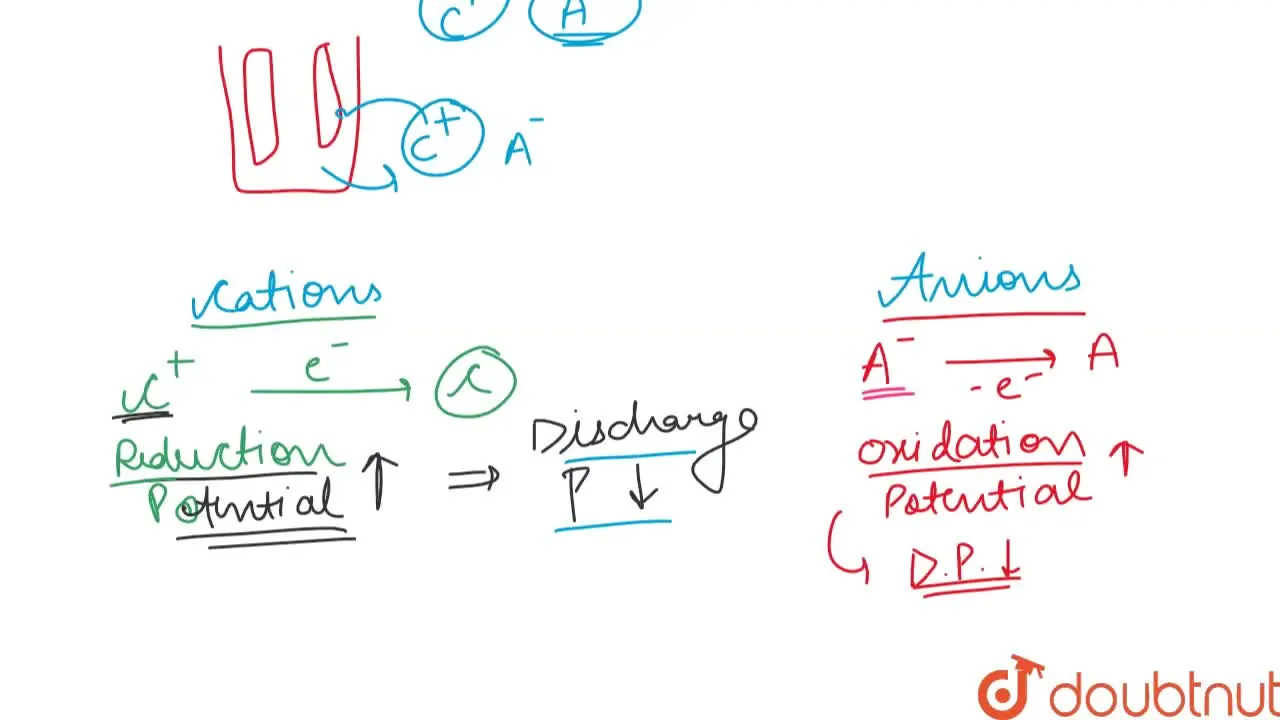 C+ A
C+ A-
Cations
Anions
C+ e- C
A- - e- A
Reduction Potential ↑ ⇒ Discharge P ↓
Oxidation Potential ↑
D.P. ↓
doubtnut